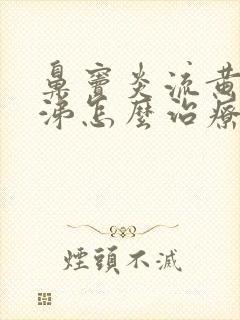 鼻竇炎流黃
涕怎麼治療
煙頭不滅